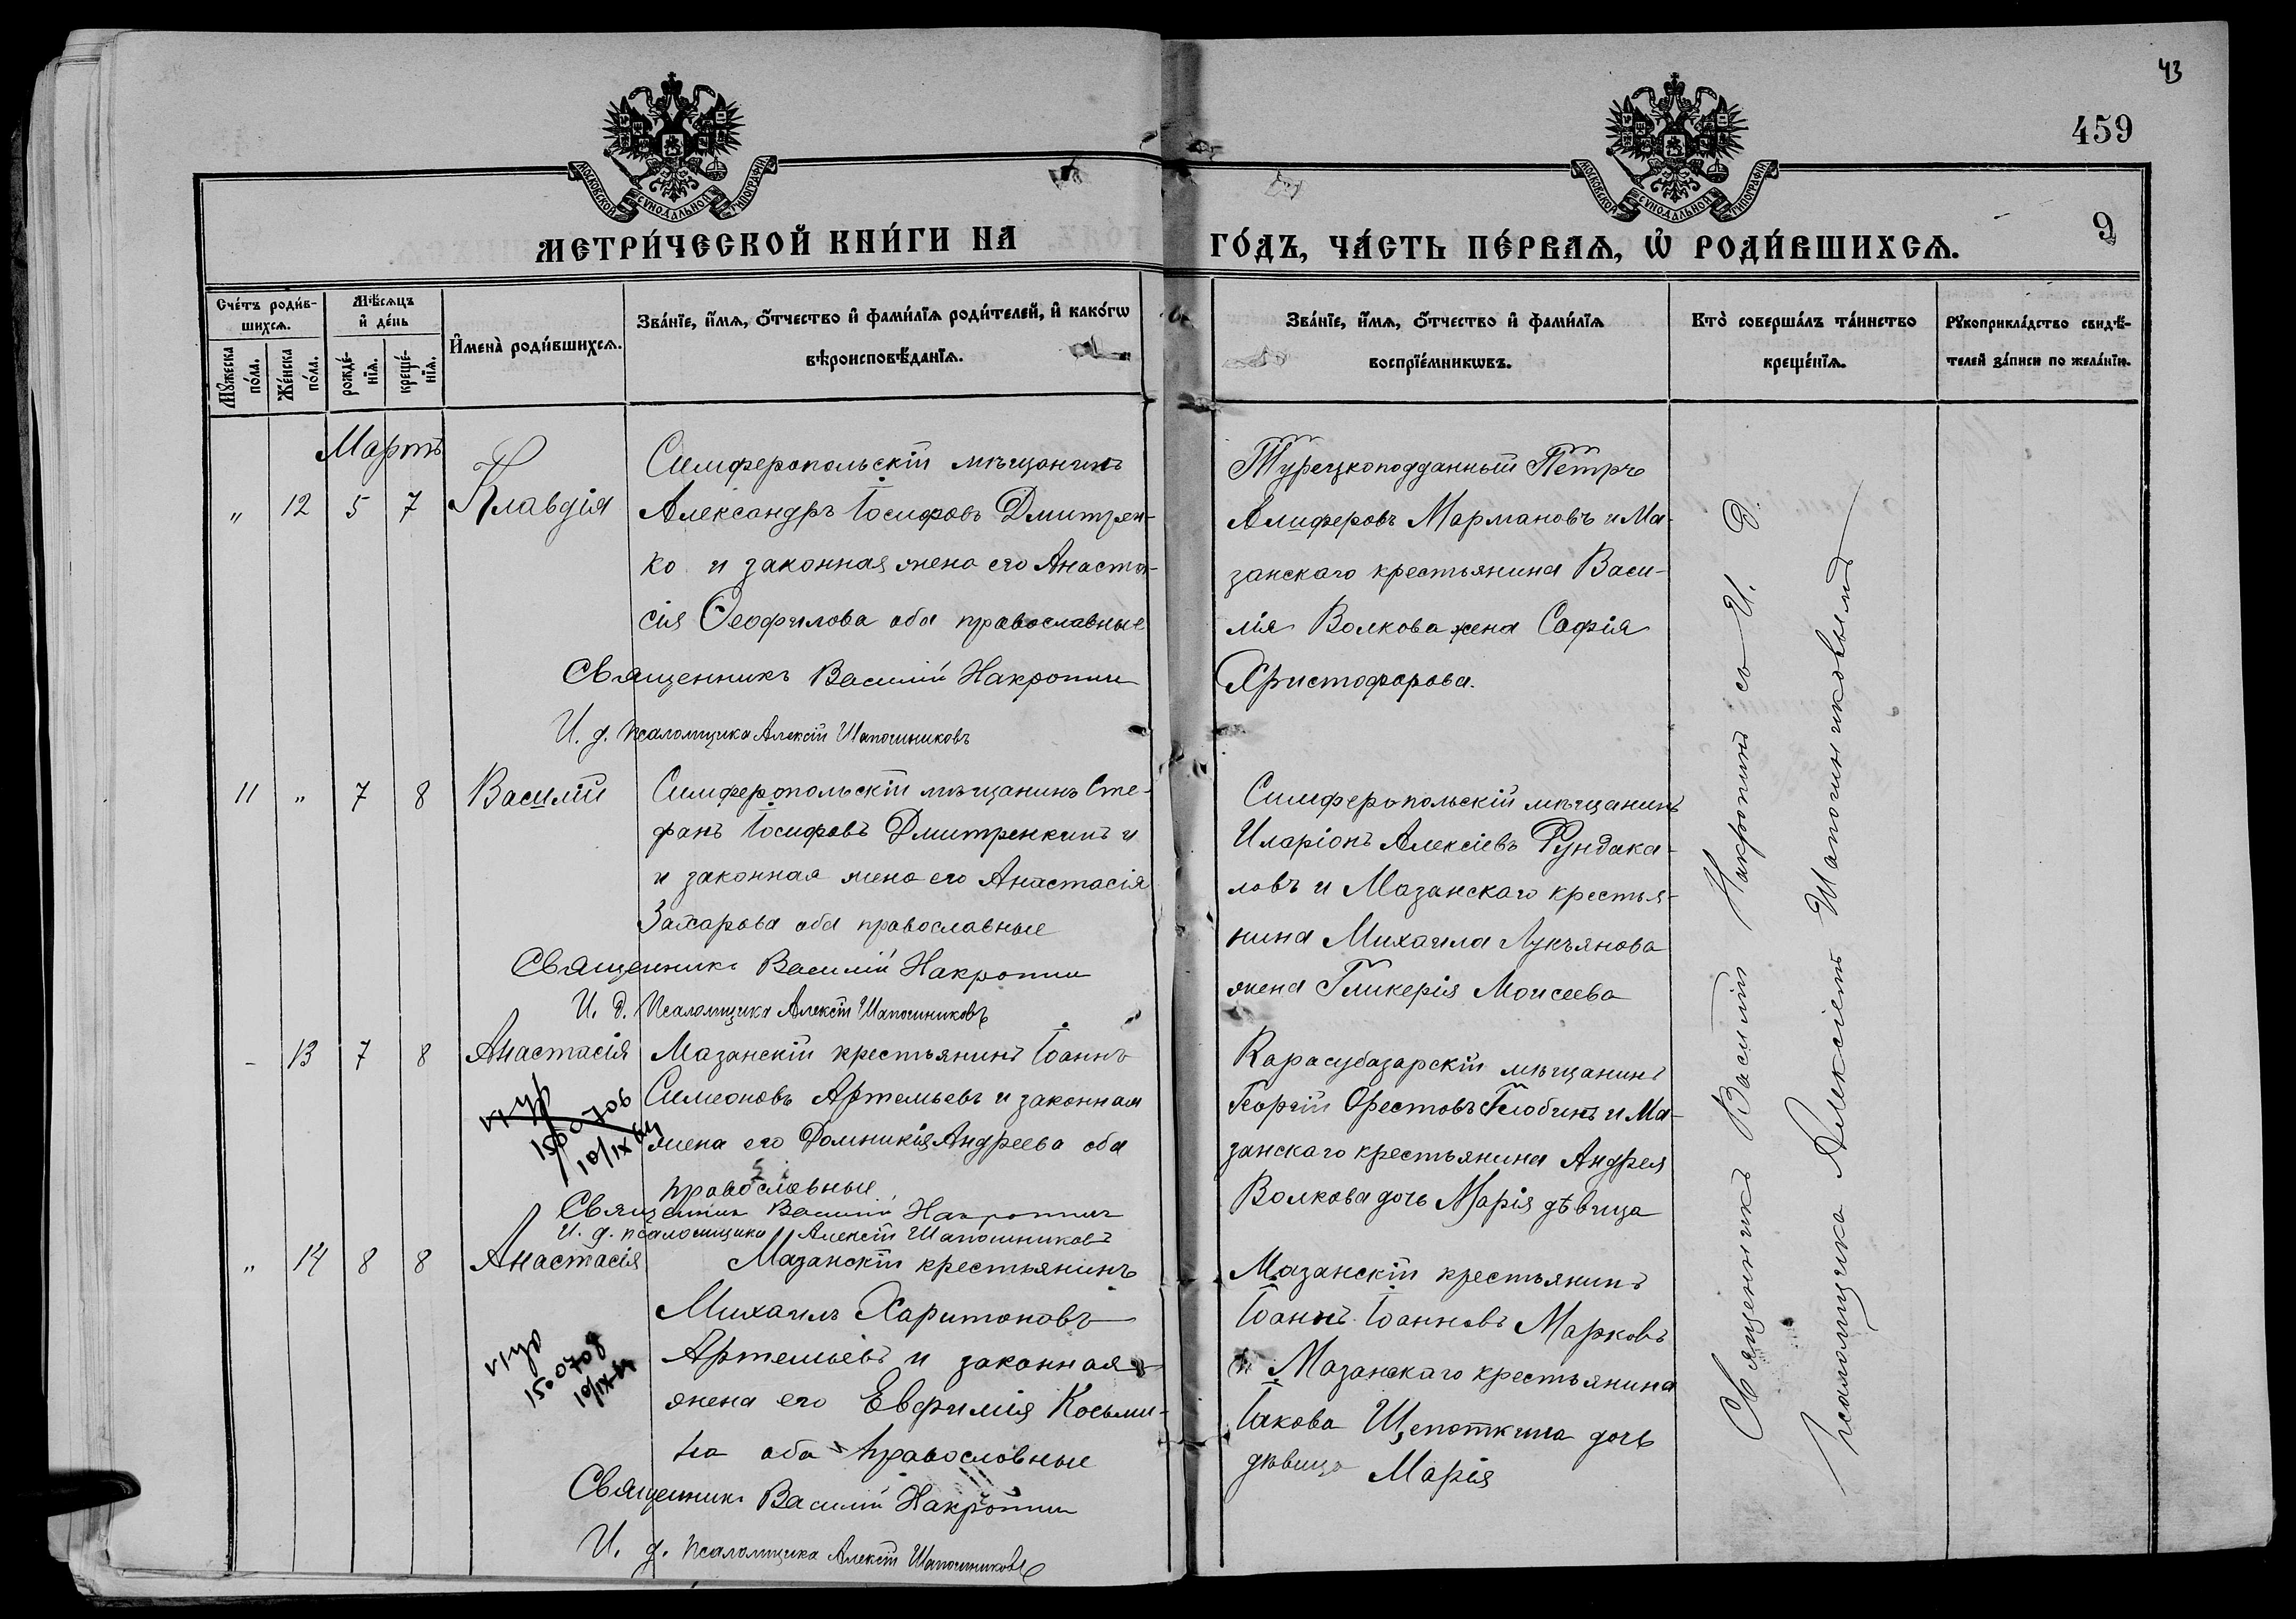 43
459
9
МОСКОВСКОЙ СѴНОДАЛЬНОЙ ТИПОГРАФІИ
МОСКОВСКОЙ СѴНОДАЛЬНОЙ ТИПОГРАФІИ
МЕТРИ́ЧЕСКОЙ КНИ́ГИ НА
ГО́ДЪ, ЧА́СТЬ ПЕ́РВАѦ, Ѡ҆ РОДИ́ВШИХСѦ.
Сче́тъ роди́в-
шихсѧ.
Мꙋ́жеска
по́ла.
Же́нска
по́ла.
Мѣ́сѧцъ
и҆ де́нь
рожде́-
нїѧ.
креще́-
нїѧ.
И҆мена̀ роди́вшихсѧ.
Зва́нїе, и҆́мѧ, ѻ҆́тчество и҆ фами́лїѧ роди́телей, и҆ како́гѡ
вѣроисповѣ́данїѧ.
Зва́нїе, и҆́мѧ, ѻ҆́тчество и҆ фами́лїѧ
воспрїе́мникѡвъ.
Кто̀ соверша́лъ та́инство
креще́нїѧ.
Рꙋкоприкла́дство свидѣ́-
телей за́писи по жела́нїю.
Мартъ
" 12 5 7 Клавдія
Симферопольскій мѣщанинъ
Александръ Іосифовъ Дмитрен-
ко и законная жена его Анаста-
сія Ѳеофилова оба православные
Священникъ Василій Накропин
И. д. псаломщика Алексій Шапошниковъ
Турецкоподданный Петръ
Алиферовъ Мармановъ и Ма-
занскаго крестьянина Васи-
лія Волкова жена Софія
Христофорова.
11 " 7 8 Василій
Симферопольскій мѣщанинъ Сте-
фанъ Іосифовъ Дмитренкинъ и
и законная жена его Анастасія
Захарова оба православные
Священникъ Василій Накропин
И. д. Псаломщика Алексій Шапошниковъ
Симферопольскій мѣщанинъ
Иларіонъ Алексіевъ Рундака-
ловъ и Мазанскаго крестья-
нина Михаила Лукъянова
жена Гликерія Моисеева
- 13 7 8 Анастасія
Мазанскій крестьянинъ Іоаннъ
Симеоновъ Артемьевъ и законная
жена его Домникія Андреева оба
православные
150706
10/IX
Священник Василий Накропин
И. д. псаломщика Алексій Шапошниковъ
Карасубазарскій мѣщанинъ
Георгій Орестовъ Глобинъ и Ма-
занскаго крестьянина Андрея
Волкова дочь Марія дѣвица
" 14 8 8 Анастасія
Мазанскій крестьянинъ
Михаилъ Харитоновъ
Артемьевъ и законная
жена его Евфимія Косьми-
на оба православные
150708
10/IX
Священникъ Василій Накропин
И. д. псаломщика Алексій Шапошниковъ
Мазанскій крестьянинъ
Іоаннъ Іоанновъ Марковъ
и Мазанскаго крестьянина
Іакова Щепоткина дочь
дѣвица Марія
Священникъ Василій Накропинъ со И. д.
псаломщика Алексіемъ Шапошниковымъ